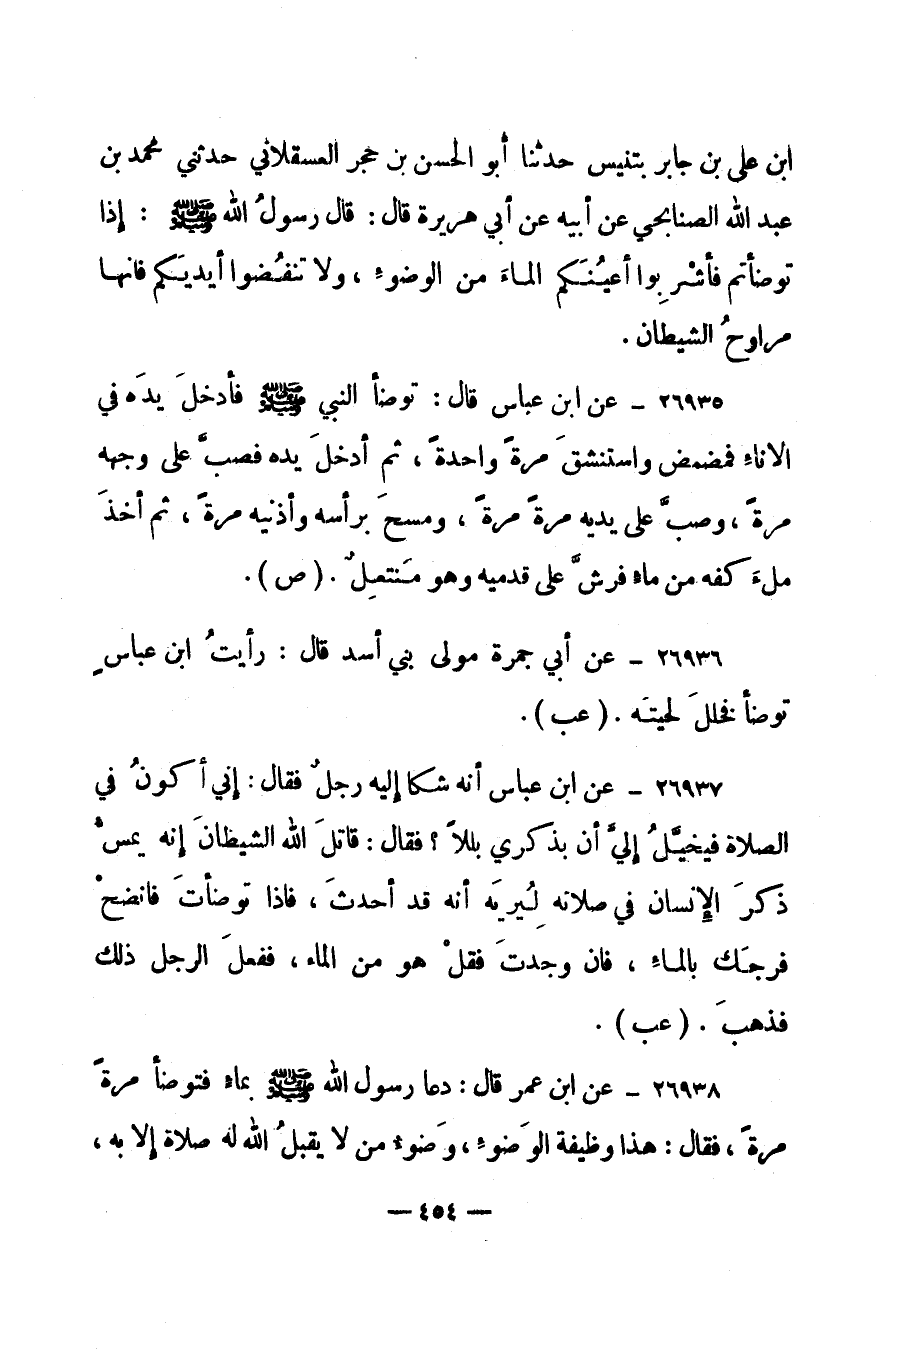 ابن علي بن جابر بتنيس حدثنا أبو الحسن بن حجر العسقلاني حدثني محمد بن
عبد الله الصنابحي عن أبيه عن أبي هريرة قال : قال رسولُ الله ﷺ : إذا
توضأتم فأشْرِبوا أعيُنَكم الماءَ من الوضوءِ ، ولا تنفُضوا أيديَكم فانها
مراوحُ الشيطان .
٢٦٩٣٥ ـ عن ابن عباس قال : توضأ النبي ﷺ فأدخلَ يدَه في
الاناءِ فمضمض واستنشقَ مرةً واحدةً ، ثم أدخلَ يده فصبَّ على وجهه
مرةً ، وصبَّ على يديه مرةً مرةً ، ومسحَ برأسه وأذنيه مرةً ، ثم أخذَ
ملءَ كفه من ماءٍ فرشَّ على قدميه وهو مَنتعِلٌ . ( ص ) .
٢٦٩٣٦ ـ عن أبي جمرة مولى بني أسد قال : رأيتُ ابن عباسٍ
توضأ فخللَ لحيتَه . ( عب ) .
٢٦٩٣٧ ـ عن ابن عباس أنه شكا إليه رجلٌ فقال : إني أكونُ في
الصلاة فيخيَّلُ إليَّ أن بذكري بللاً ؟ فقال : قاتلَ الله الشيظانَ إنه يمسُّ
ذكرَ الإِنسان في صلاته لِيُريَه أنه قد أحدثَ ، فاذا توضأتَ فانضحْ
فرجَك بالماءِ ، فان وجدتَ فقلْ هو من الماء ، ففعلَ الرجل ذلك
فذهبَ . ( عب ) .
٢٦٩٣٨ ـ عن ابن عمر قال : دعا رسول الله ﷺ بماءٍ فتوضأ مرةً
مرةً ، فقال : هذا وظيفة الوَضوءِ ، وَضوءُ من لا يقبلُ الله له صلاة إلا به ،
— ٤٥٤ —